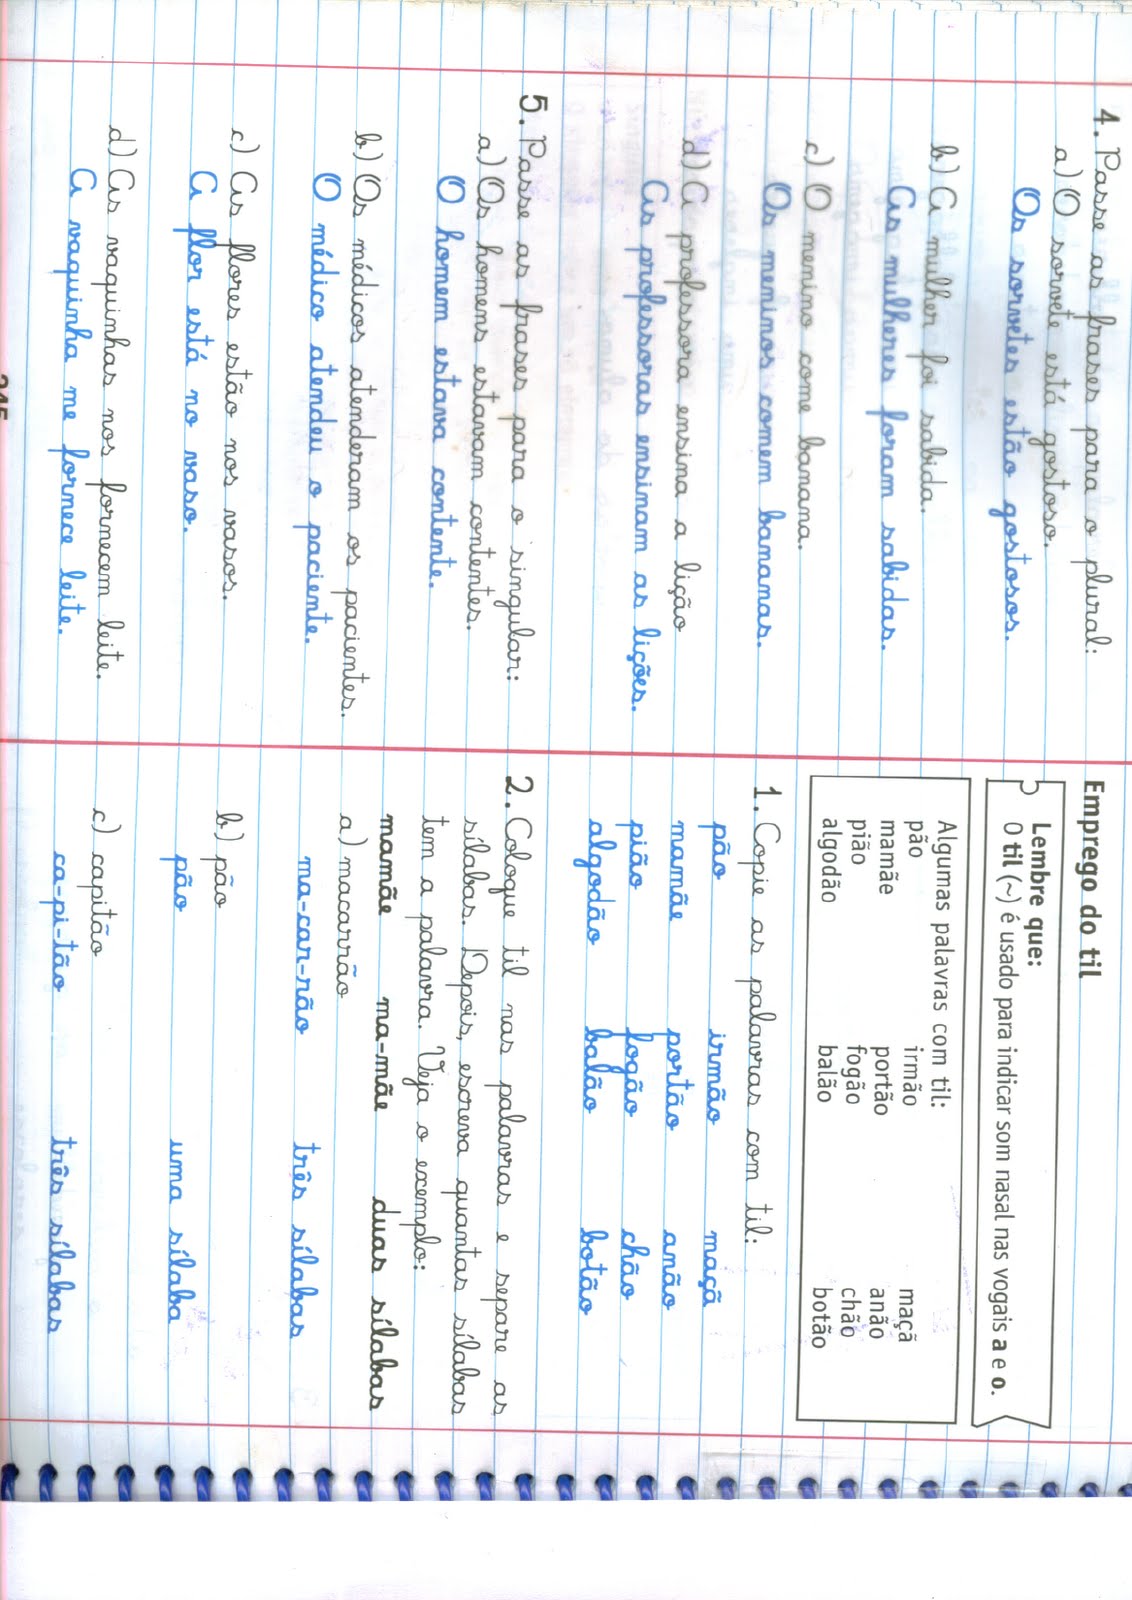 4. Passe as frases para o plural:
a) O sorvete está gostoso.
Os sorvetes estão gostosos.
b) A mulher foi sabida.
As mulheres foram sabidas.
c) O menino come banana.
Os meninos comem bananas.
d) A professora ensina a lição
As professoras ensinam as lições.
5. Passe as frases para o singular:
a) Os homens estavam contentes.
O homem estava contente.
b) Os médicos atenderam os pacientes.
O médico atendeu o paciente.
c) As flores estão nos vasos.
A flor está no vaso.
d) As vaquinhas nos fornecem leite.
A vaquinha me fornece leite.
245
Emprego do til
Lembre que:
O til (~) é usado para indicar som nasal nas vogais a e o.
Algumas palavras com til:
pão irmão maçã
mamãe portão anão
pião fogão chão
algodão balão botão
1. Copie as palavras com til:
pão irmão maçã
mamãe portão anão
pião fogão chão
algodão balão botão
2. Coloque til nas palavras e separe as
sílabas. Depois, escreva quantas sílabas
tem a palavra. Veja o exemplo:
mamãe ma-mãe duas sílabas
a) macarrão
ma-car-rão três sílabas
b) pão
pão uma sílaba
c) capitão
ca-pi-tão três sílabas